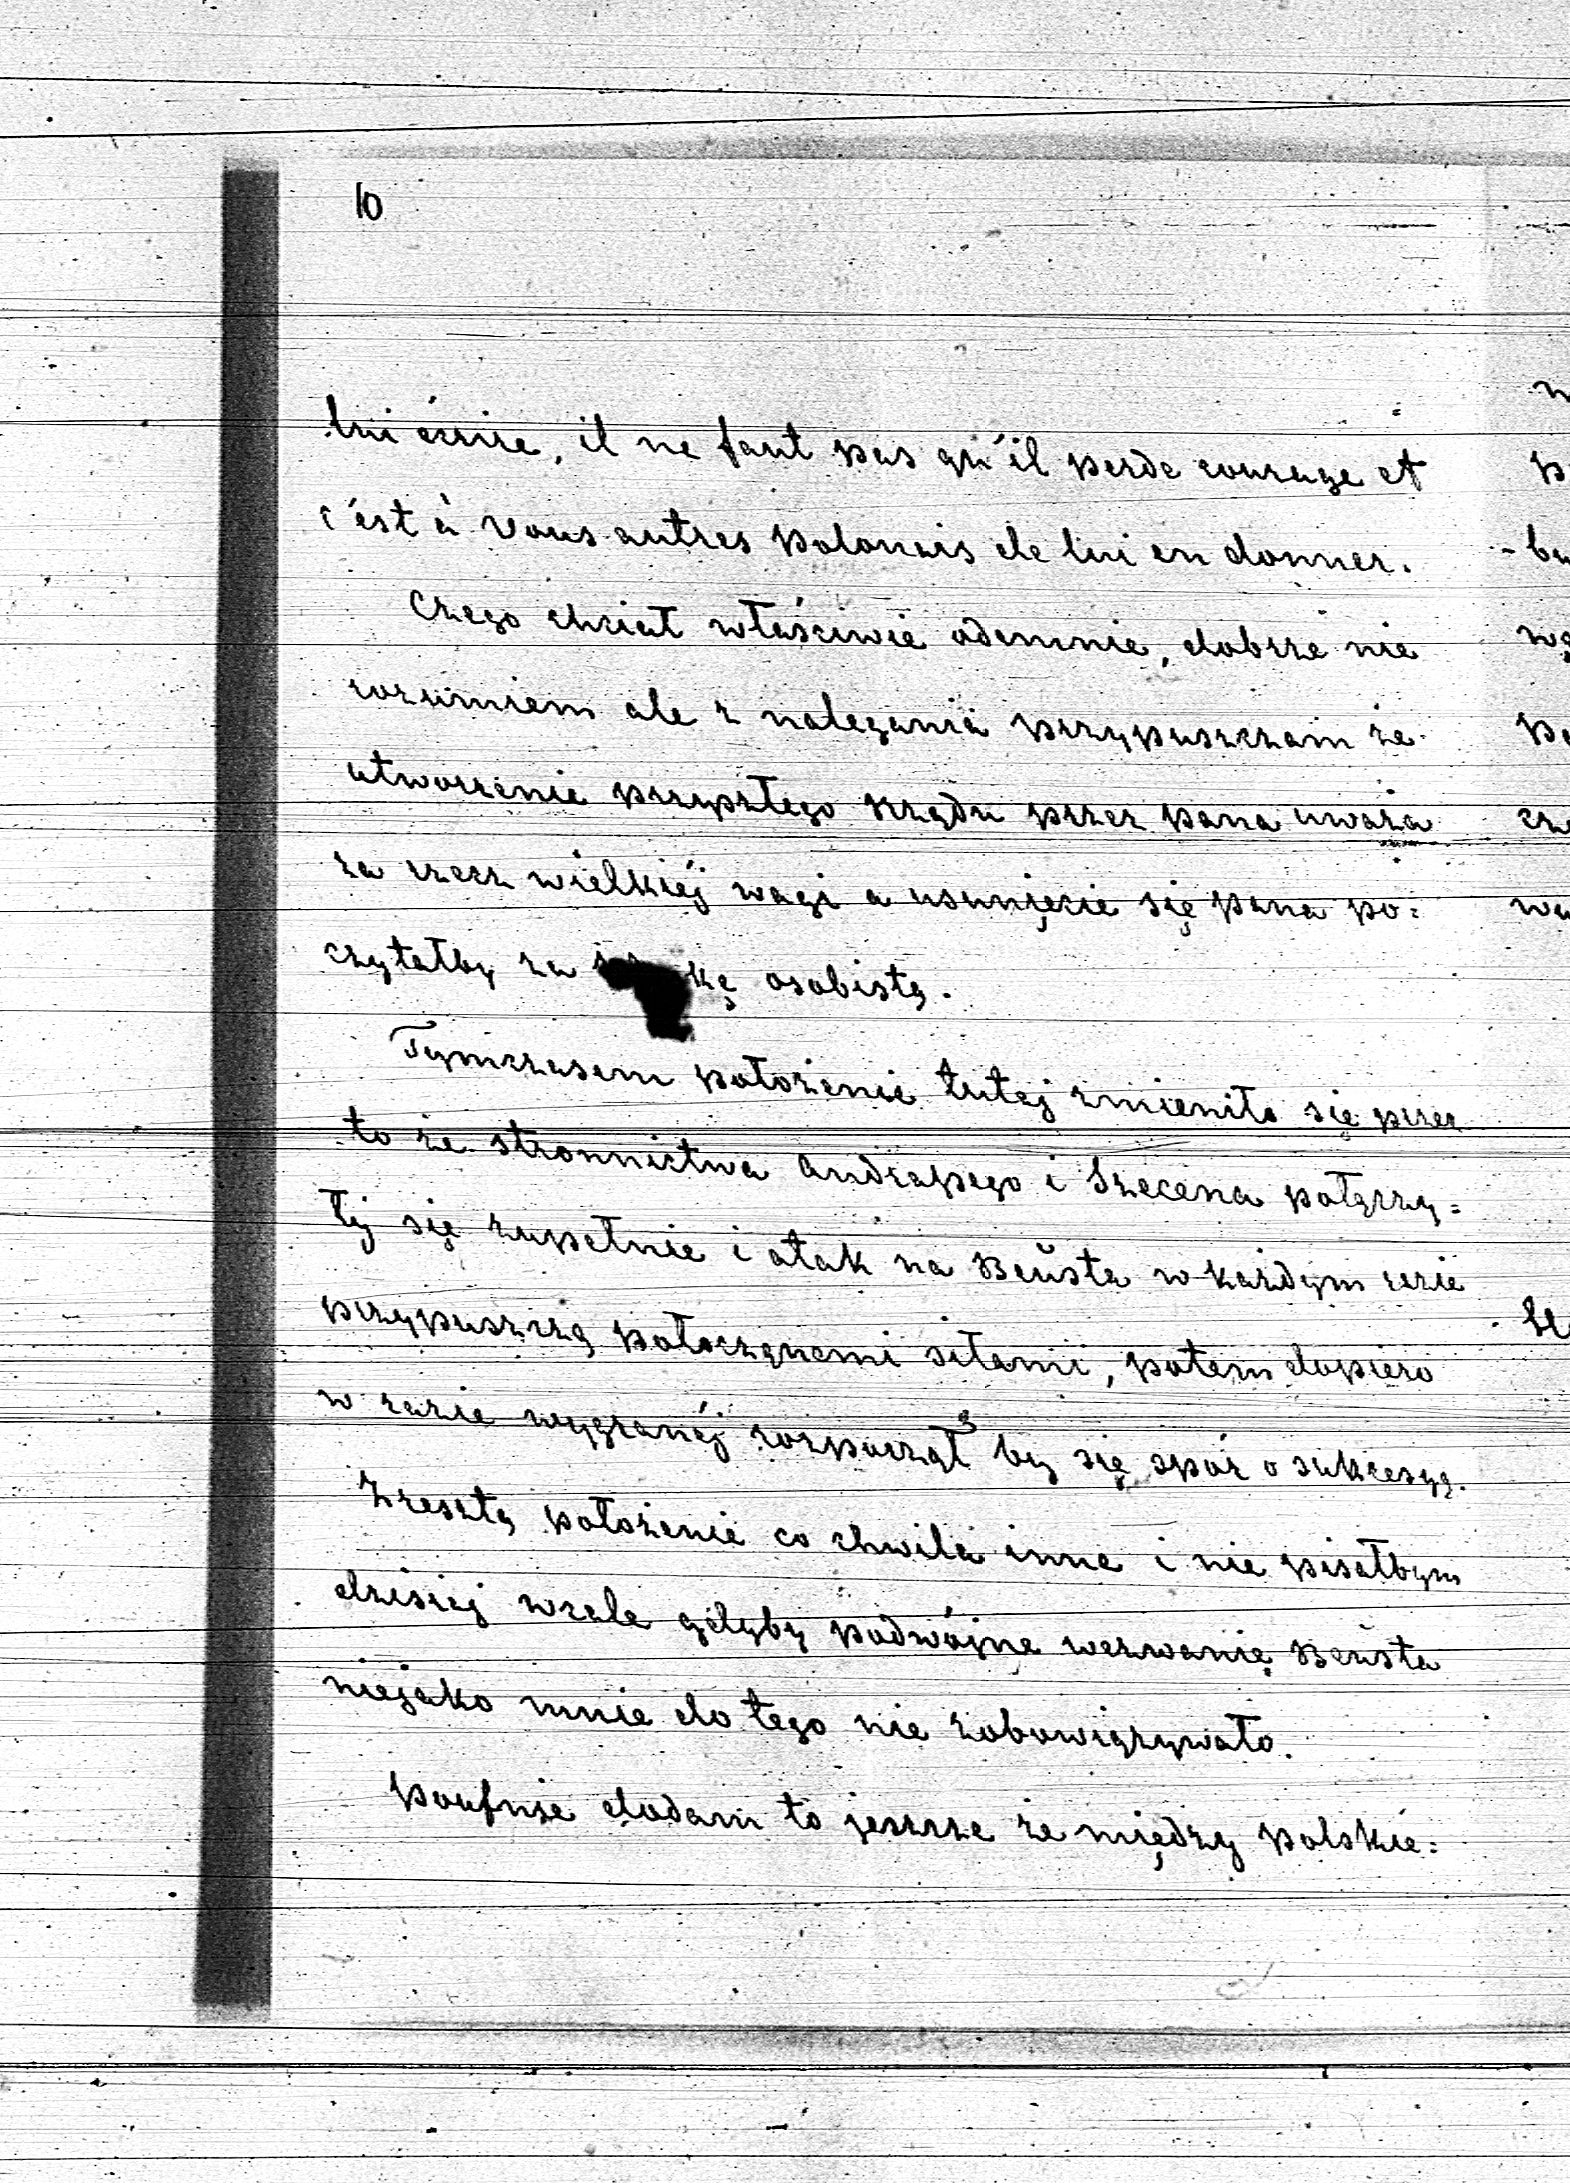 10
lui écrire, il ne faut pas qu'il perde courage et
c'est à vous autres polonais de lui en donner.
Czego chciał właściwie odemnie, dobrze nie
rozumiem ale z nalegania przypuszczam że
utworzenie przyszłego rządu przez pana uważa
za rzecz wielkiéj wagi a usunięcie się pana po=
czytałby za osobistą.
Tymczasem położenie tutaj zmieniło się przez
to że stronnictwa Andrassego i Szecena połączy=
ły się zupełnie i atak na Beusta w każdym razie
przypuszczą połączonemi siłami, potem dopiero
w razie wygranéj rozpocząłby się spór o sukcesyą.
Zresztą położenie co chwila inne i nie pisałbym
dzisiaj wcale gdyby podwójne wezwanie Beusta
niejako mnie do tego nie zobowiązywało.
Poufnie dodam to jeszcze że między polskie=